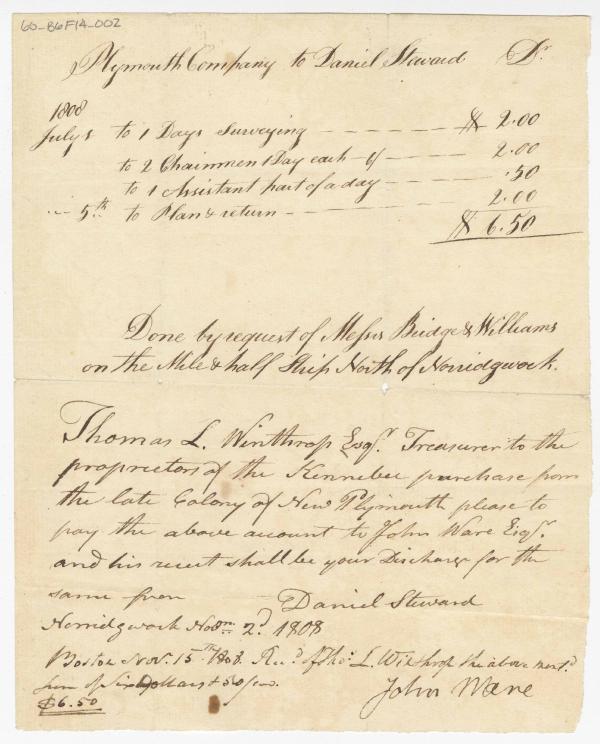 60-B6F14-002
Plymouth Company to Daniel Steward Dr
1808
July 1 to 1 Days Surveying $ 2.00
to 2 Chainmen 1 Day each 2.00
to 1 Assistant part of a day .50
5th to Plan & return 2.00
$ 6.50
Done by request of Messrs Bridge & Williams
on the Mile & half Strip North of Norridgwock.
Thomas L. Winthrop Esqr. Treasurer to the
proprietors of the Kennebec purchase from
the late Colony of New Plymouth please to
pay the above account to John Ware Esqr.
and his receit shall be your Discharge for the
same from Daniel Steward
Norridgwock 2d 1808
Boston Nov. 15th 1808. Recd of Tho: L. Winthrop the above mentd.
sum of Six Dollars & 50/
$6.50 John Ware